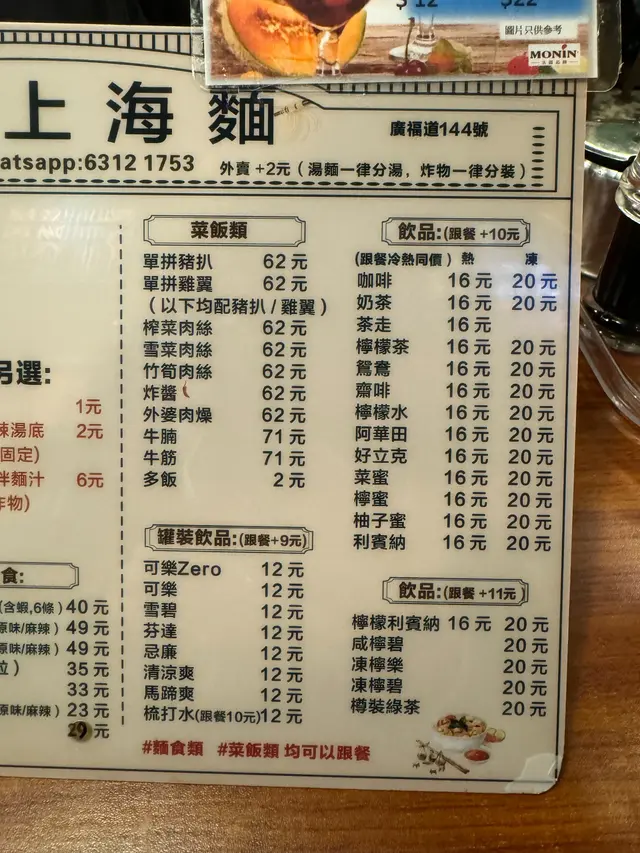 $12 $22
圖片只供參考
MONIN
上海麵
廣福道144號
atsapp:6312 1753
外賣 +2元（湯麵一律分湯，炸物一律分裝）
另選:
1元
辣湯底 2元
固定)
拌麵汁 6元
炸物)
食:
(含蝦,6條) 40元
原味/麻辣) 49元
原味/麻辣) 49元
位) 35元
33元
原味/麻辣) 23元
29元
菜飯類
單拼豬扒 62元
單拼雞翼 62元
（以下均配豬扒/雞翼）
榨菜肉絲 62元
雪菜肉絲 62元
竹筍肉絲 62元
炸醬 62元
外婆肉燥 62元
牛腩 71元
牛筋 71元
多飯 2元
罐裝飲品:(跟餐+9元)
可樂Zero 12元
可樂 12元
雪碧 12元
芬達 12元
忌廉 12元
清涼爽 12元
馬蹄爽 12元
梳打水(跟餐10元)12元
飲品:(跟餐 +10元)
(跟餐冷熱同價) 熱 凍
咖啡 16元 20元
奶茶 16元 20元
茶走 16元
檸檬茶 16元 20元
鴛鴦 16元 20元
齋啡 16元 20元
檸檬水 16元 20元
阿華田 16元 20元
好立克 16元 20元
菜蜜 16元 20元
檸蜜 16元 20元
柚子蜜 16元 20元
利賓納 16元 20元
飲品:(跟餐 +11元)
檸檬利賓納 16元 20元
咸檸碧 20元
凍檸樂 20元
凍檸碧 20元
樽裝綠茶 20元
#麵食類 #菜飯類 均可以跟餐